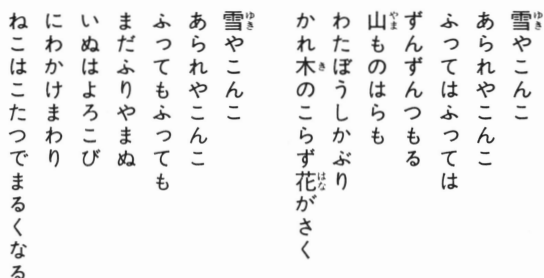 雪やこんこ
あられやこんこ
ふってはふっては
ずんずんつもる
山ものはらも
わたぼうしかぶり
かれ木のこらず花がさく
雪やこんこ
あられやこんこ
ふってもふっても
まだふりやまぬ
いぬはよろこび
にわかけまわり
ねこはこたつでまるくなる